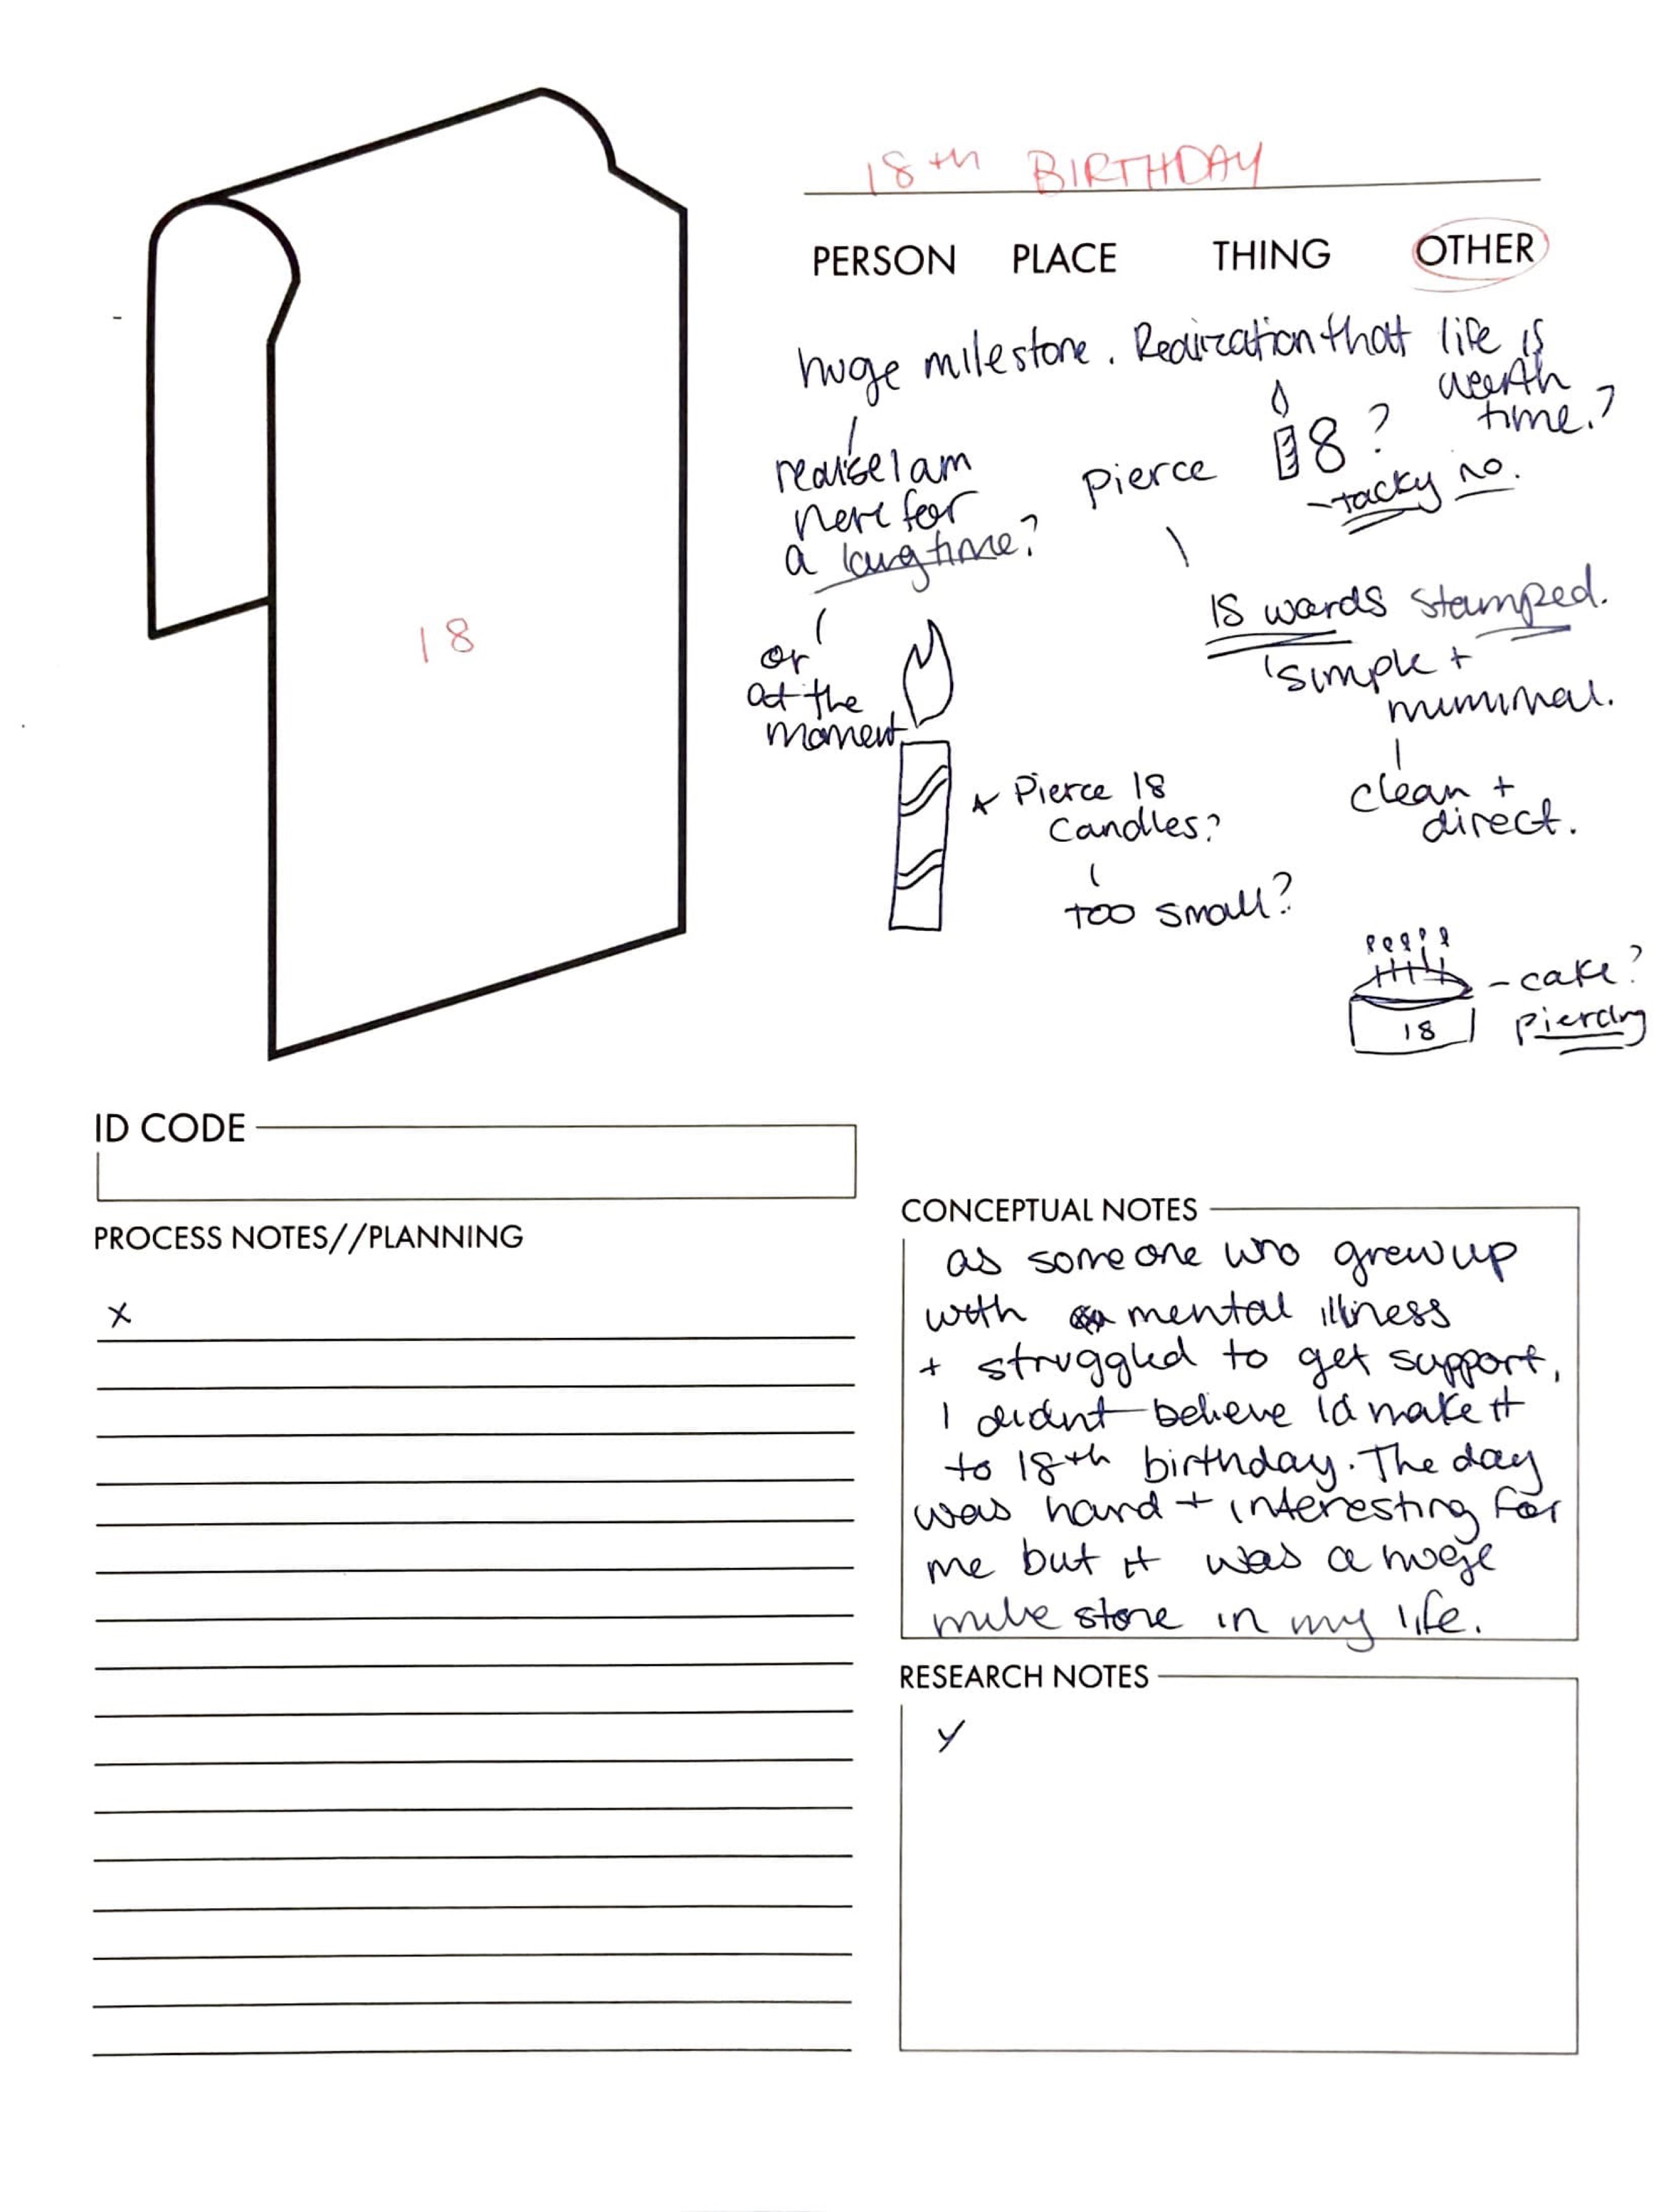 18th BIRTHDAY
PERSON PLACE THING OTHER
huge milestone. Realization that life is
worth
time.?
realise I am
here for
a long time?
or
at the
moment
Pierce 18?
-tacky no.
18 words stamped.
simple +
minimal.
clean +
direct.
Pierce 18
Candles?
too small?
18
- cake?
piercing
18
ID CODE
PROCESS NOTES//PLANNING
x
CONCEPTUAL NOTES
as someone who grew up
with mental illness
+ struggled to get support,
I didnt believe Id make it
to 18th birthday. The day
was hard + interesting for
me but it was a huge
mile stone in my life.
RESEARCH NOTES
y